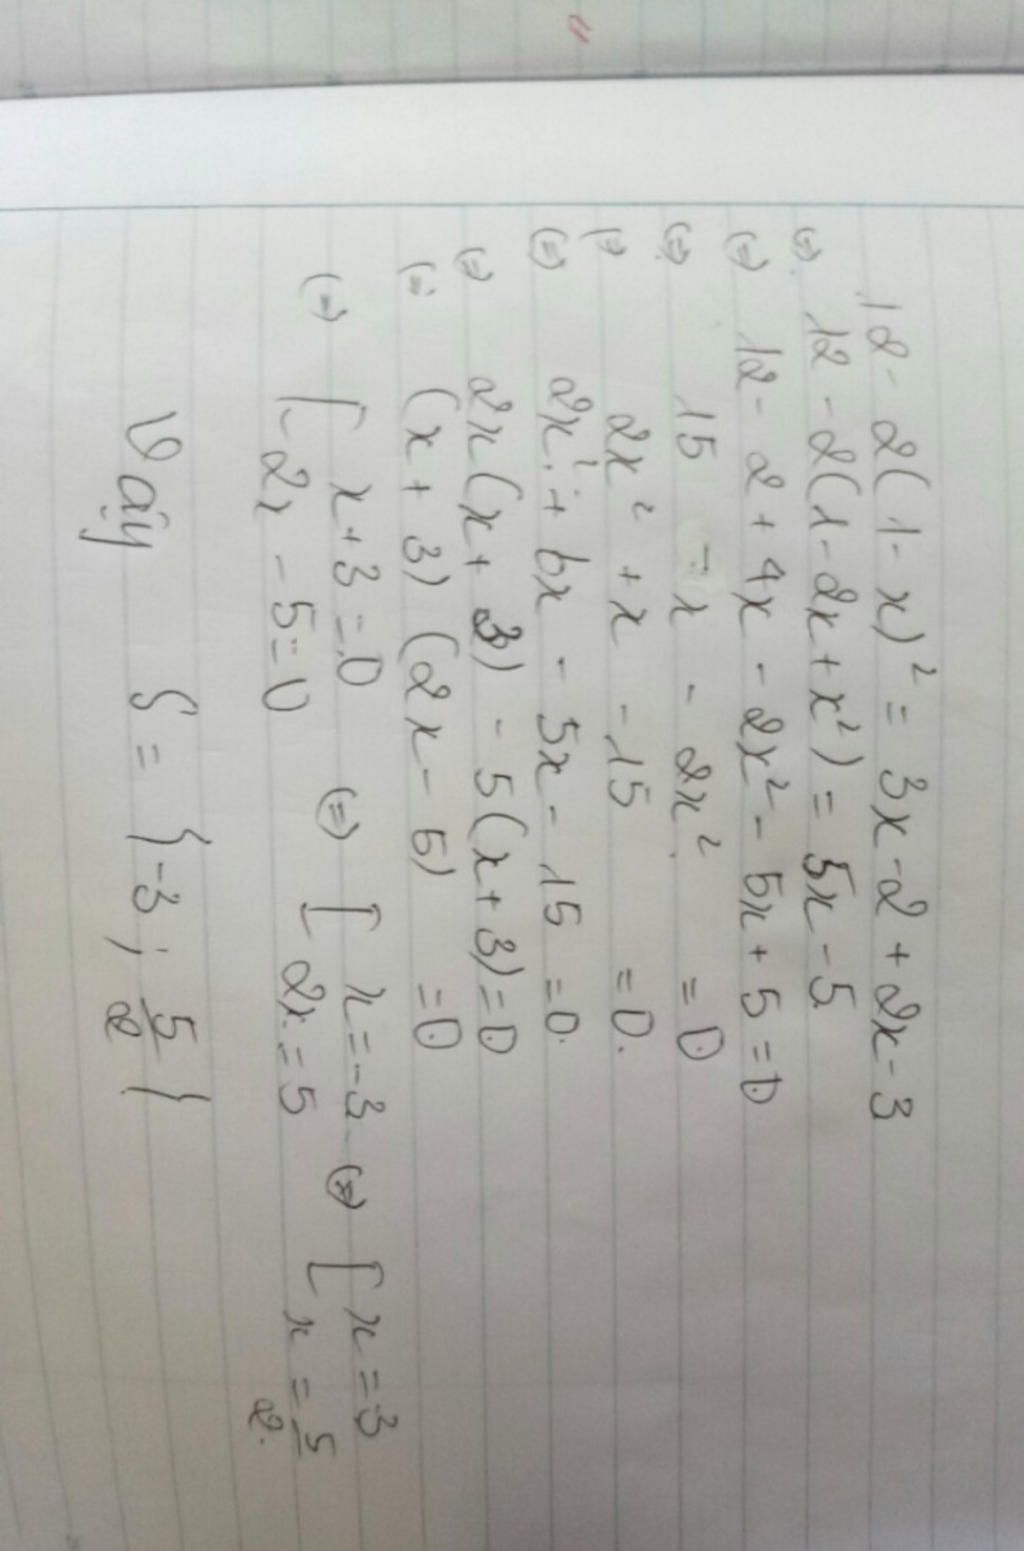 12 - 2(1 - x)² = 3x - 2 + 2x - 3
(=) 12 - 2(1 - 2x + x²) = 5x - 5
(=) 12 - 2 + 4x - 2x² - 5x + 5 = 0
(=) 15 - x - 2x² = 0
(=) 2x² + x - 15 = 0.
(=) 2x² + 6x - 5x - 15 = 0.
(=) 2x(x + 3) - 5(x + 3) = 0
(=) (x + 3)(2x - 5) = 0
(=) [ x + 3 = 0 (=) [ x = -3 (=) [ x = -3
2x - 5 = 0 2x = 5 x = 5/2.
Vậy S = {-3; 5/2}